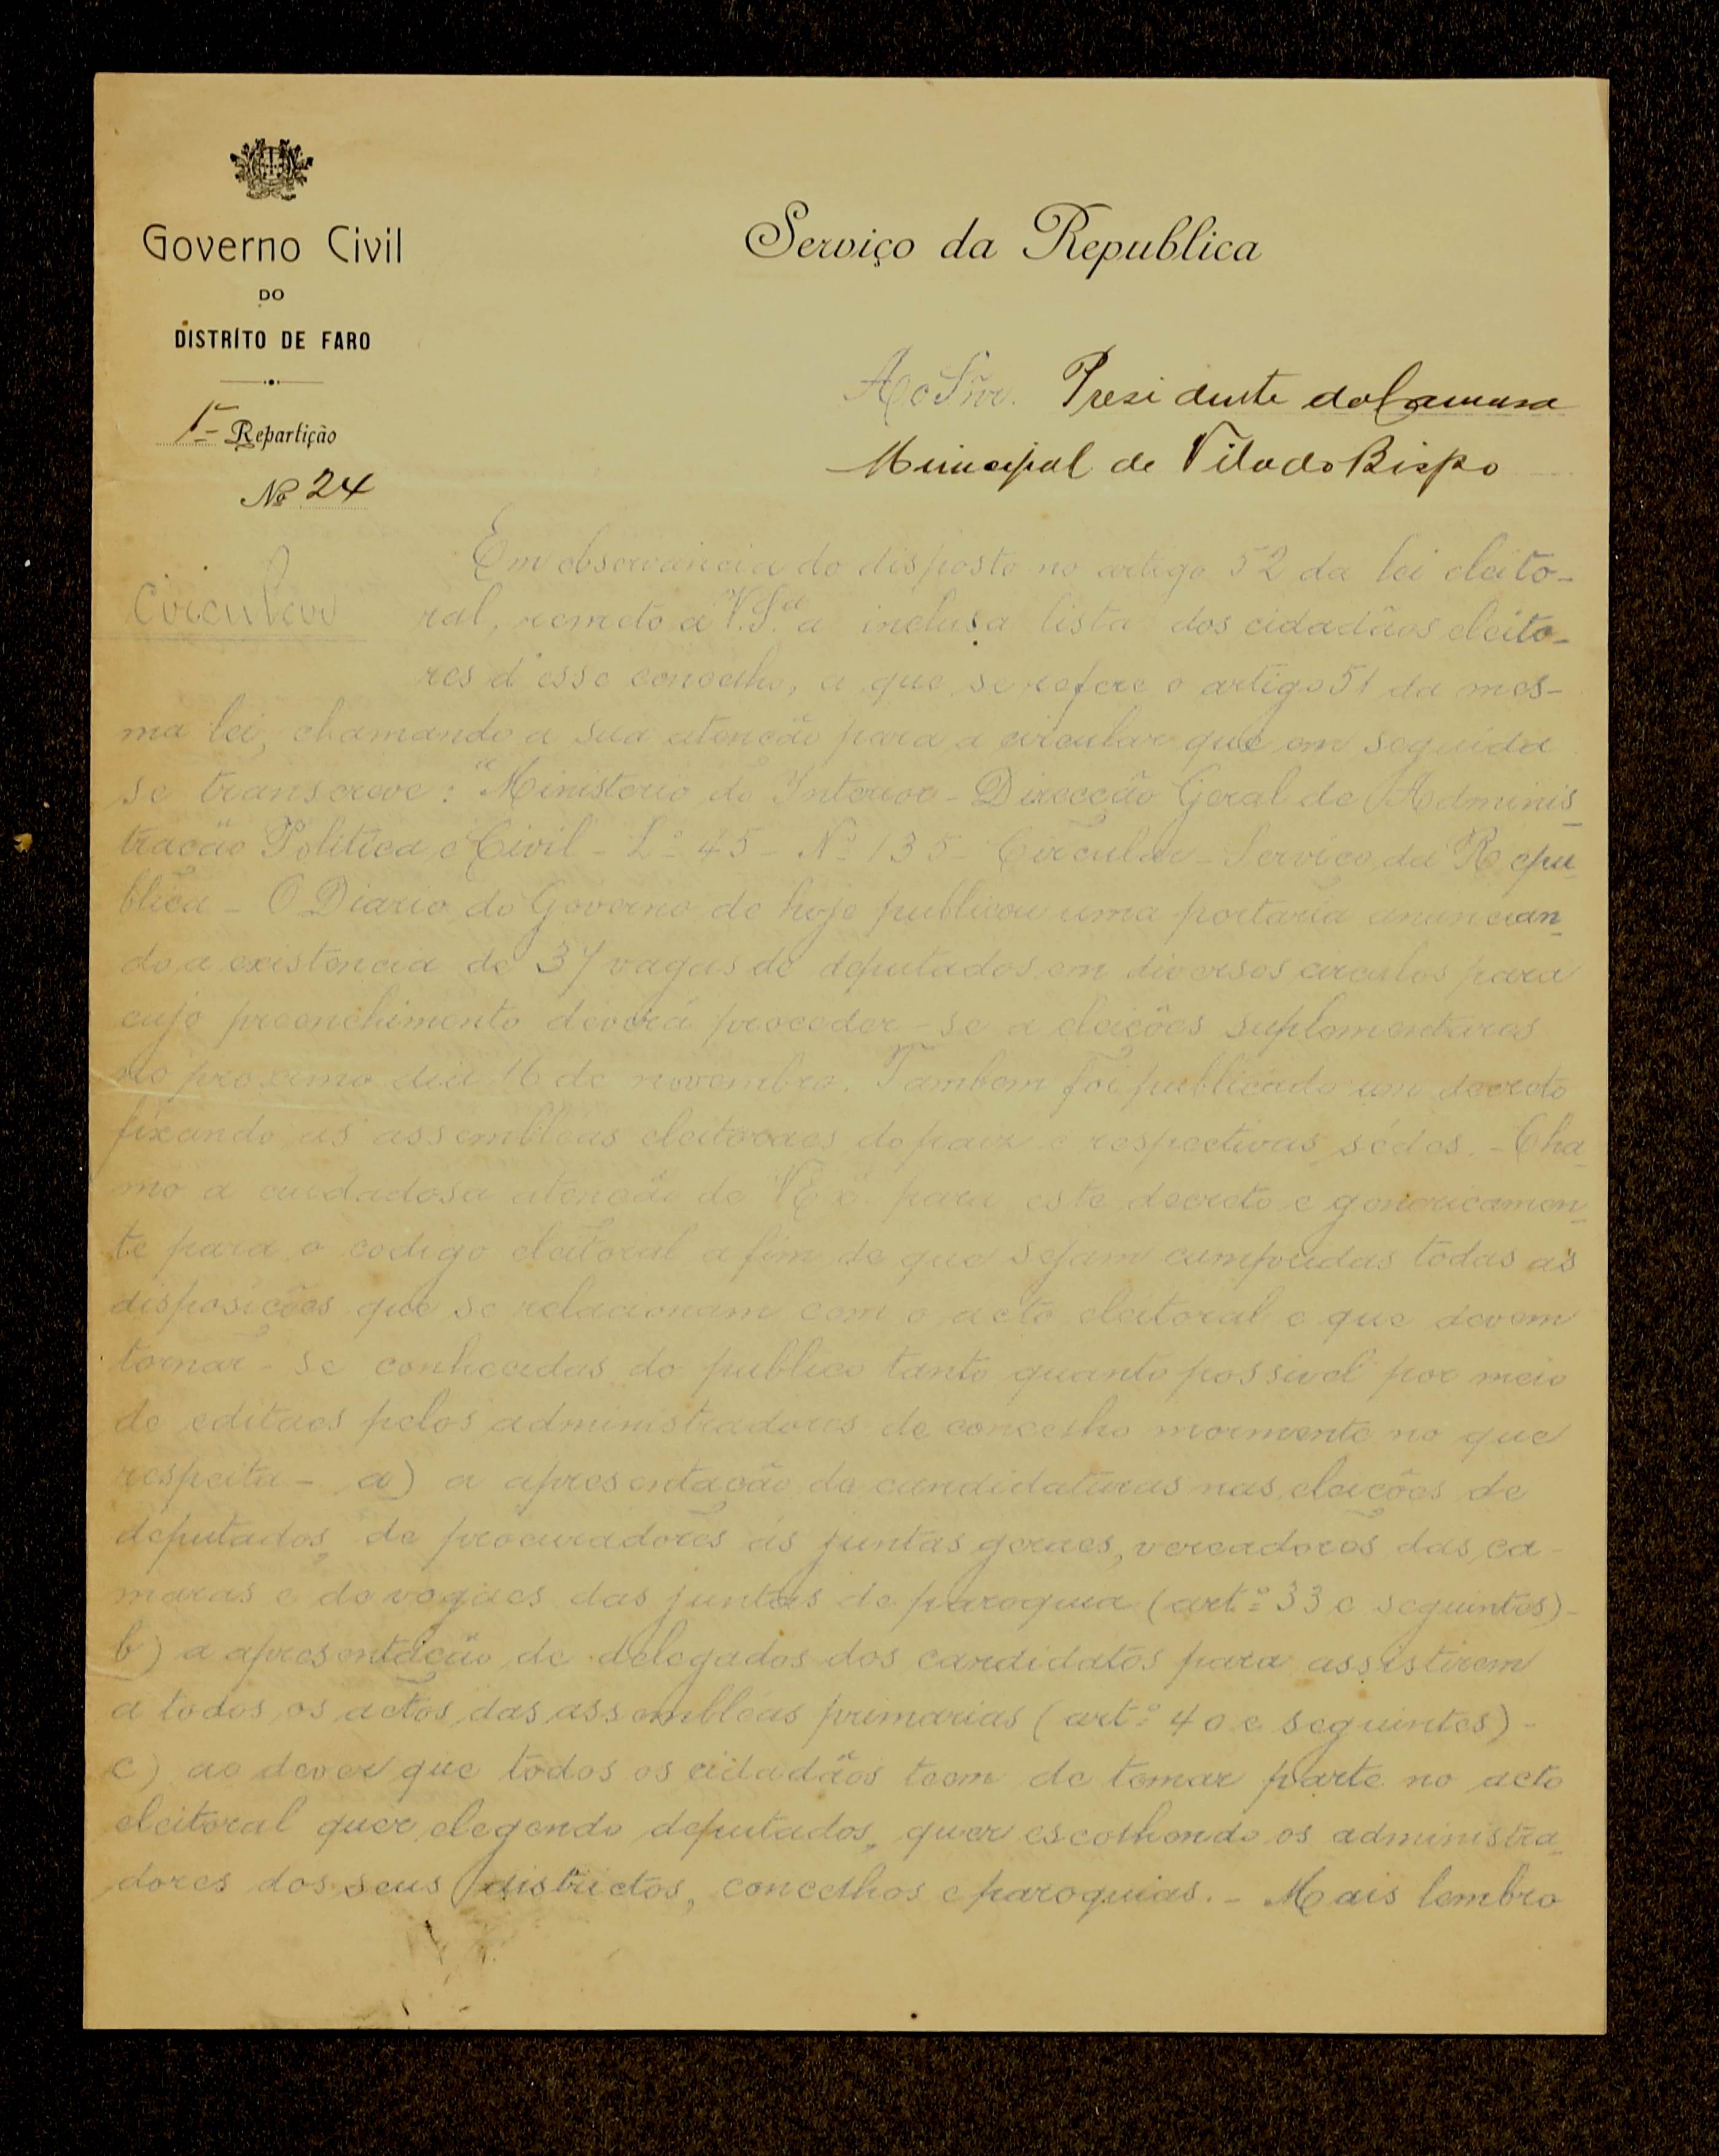 Governo Civil
DO
DISTRITO DE FARO
1ª Repartição
Nº 24
Circular
Serviço da Republica
Ao Snr. Presidente da Camara
Municipal de Vila do Bispo
Em observancia do disposto no artigo 52 da lei eleito-
ral, remeto a V. S.ª a inclusa lista dos cidadãos eleito-
res d'esse concelho, a que se refere o artigo 51 da mes-
ma lei, chamando a sua atenção para a circular que em seguida
se transcreve: "Ministerio do Interior - Direcção Geral de Adminis-
tração Politica e Civil - Lº 45 - Nº 135 - Circular - Serviço da Repu-
blica - O Diario do Governo de hoje publicou uma portaria anuncian-
do a existencia de 37 vagas de deputados em diversos circulos para
cujo preenchimento deverá proceder-se a eleições suplementares
no proximo dia 16 de novembro. Tambem foi publicado um decreto
fixando as assembleas eleitoraes do paiz e respectivas sédes. - Cha-
mo a cuidadosa atenção de V. Ex.ª para este decreto e genericamen-
te para o codigo eleitoral a fim de que sejam cumpridas todas as
disposições que se relacionam com o acto eleitoral e que devem
tornar-se conhecidas do publico tanto quanto possivel por meio
de editaes pelos administradores de concelho mormente no que
respeita - a) a apresentação de candidaturas nas eleições de
deputados, de procuradores ás juntas geraes, vereadores das ca-
maras e de vogaes das juntas de paroquia (artº 33 e seguintes) -
b) a apresentação de delegados dos candidatos para assistirem
a todos os actos das assembleas primarias (artº 40 e seguintes) -
c) ao dever que todos os cidadãos teem de tomar parte no acto
eleitoral quer elegendo deputados, quer escolhendo os administra-
dores dos seus districtos, concelhos e paroquias. - Mais lembro